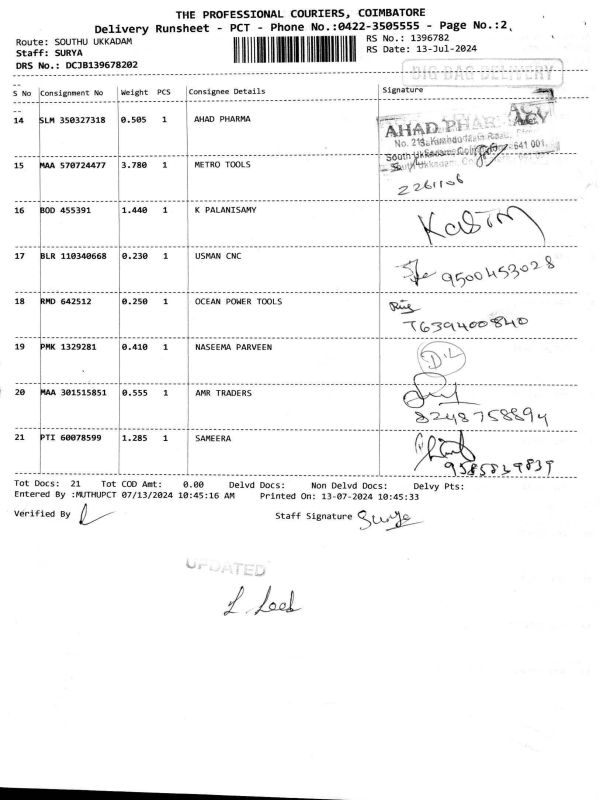 THE PROFESSIONAL COURIERS, COIMBATORE
Delivery Runsheet - PCT - Phone No.:0422-3505555 - Page No.:2
Route: SOUTHU UKKADAM
RS No.: 1396782
Staff: SURYA
RS Date: 13-Jul-2024
DRS No.: DCJB139678202
BIG BAG DELIVERY
S No Consignment No Weight PCS Consignee Details Signature
14 SLM 350327318 0.505 1 AHAD PHARMA
AHAD PHARMACY
15 MAA 570724477 3.780 1 METRO TOOLS
2261106
16 BOD 455391 1.440 1 K PALANISAMY
17 BLR 110340668 0.230 1 USMAN CNC
9500453028
18 RMD 642512 0.250 1 OCEAN POWER TOOLS
T639400840
19 PMK 1329281 0.410 1 NASEEMA PARVEEN
20 MAA 301515851 0.555 1 AMR TRADERS
8248758894
21 PTI 60078599 1.285 1 SAMEERA
9585839839
Tot Docs: 21 Tot COD Amt: 0.00 Delvd Docs: Non Delvd Docs: Delvy Pts:
Entered By :MUTHUPCT 07/13/2024 10:45:16 AM Printed On: 13-07-2024 10:45:33
Verified By
Staff Signature Surya
UPDATED